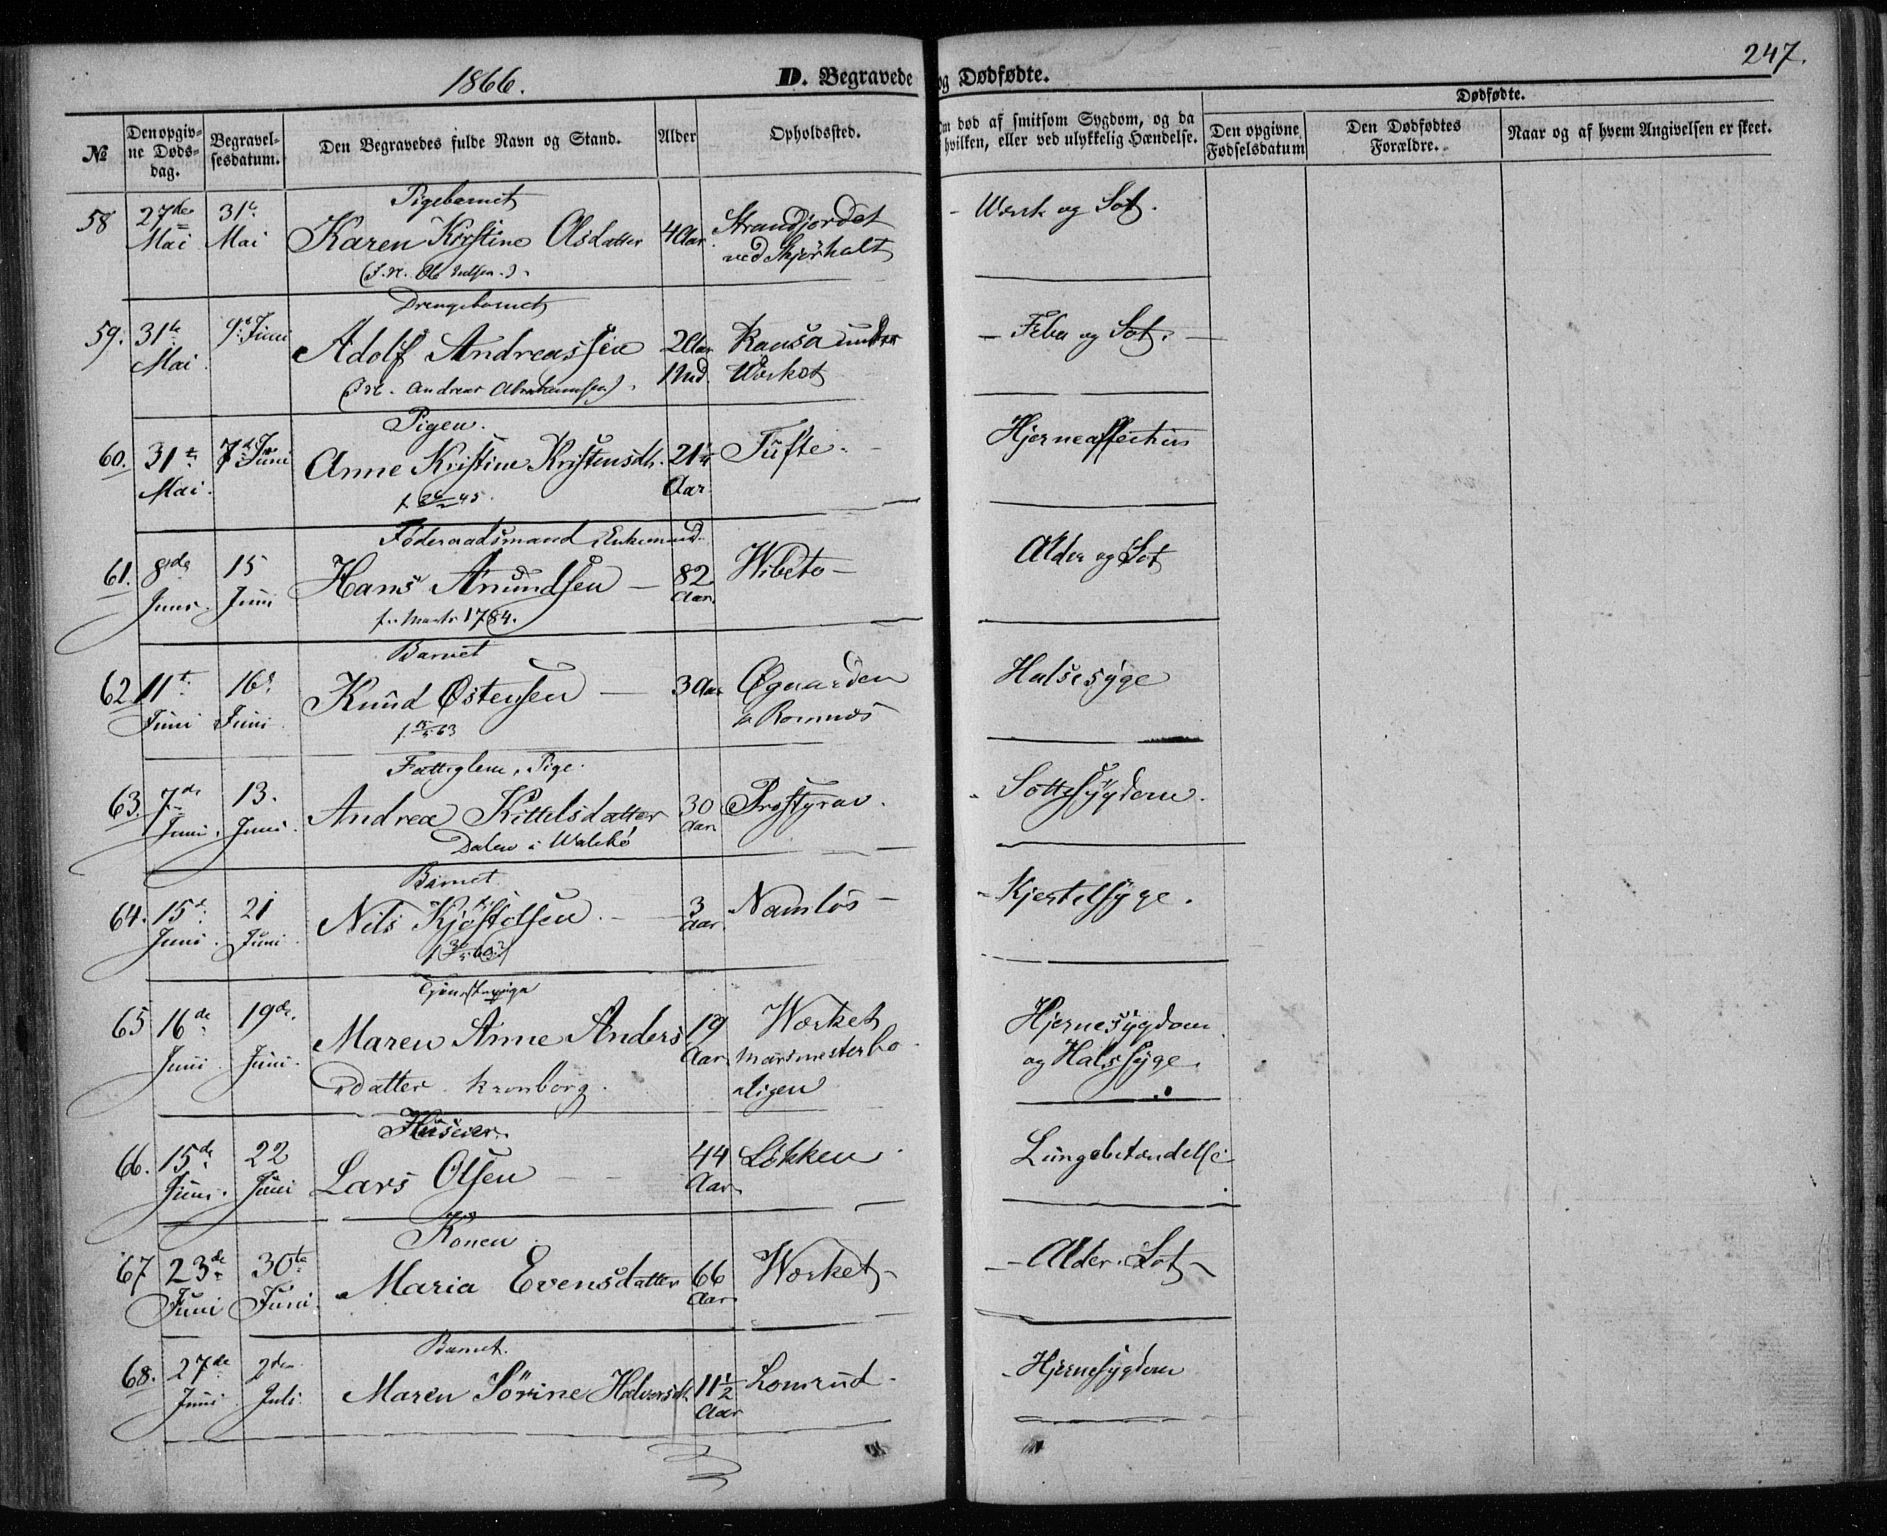 1866.
D. Begravede og Dødfødte.
247.
№
Den opgivne Dødsdag.
Begravelsesdatum.
Den Begravedes fulde Navn og Stand.
Alder
Opholdssted.
Om død af smitsom Sygdom, og da hvilken, eller ved ulykkelig Hændelse.
Dødfødte.
Den opgivne Fødselsdatum
Den Dødfødtes Forældre.
Naar og af hvem Angivelsen er skeet.
Pigebarnet
58 27de Mai 31te Mai Karen Kirstine Olsdatter 4 Aar Strandjordet - Værk og Sot.
ved Skjørholt
Drengebarnet
59. 31te Mai Juni Adolf Andreassen 2 Aar Ransa under - Feber og Sot. -
(Andreas Abrahamsen) 1 Md. Værket
Pigen.
60. 31te Mai. 7de Juni Anne Kristine Kristensdt. 21 Aar Tufte. - Hjerneaffection
45.
Føderaadsmand, Enkemand
61. 8de Juni. 15 Juni Hans Amundsen - 82 Aar. Wibeto - Alder og Sot
f. Marts 1784.
Barnet
62 11te Juni 16de Juni Knud Østensen - 3 Aar Øgaarden Halsesyge
63 Romnæs
Fattiglem, Pige.
63. 7de Juni. 13. Juni. Andrea Kittelsdatter 30 Aar. Sottesygdom.
Dalen i
Barnet.
64. 15de Juni. 21 Juni. Nils Kjøstolsen. - 3 Aar. Namløs - - Kjertelsyge.
Tjenestepige
65 16de Juni. 19de. Juni. Maren Anne Anders 19 Aar Værket Hjernesygdom
datter Kronborg. Marsmesterbo og Halssyge.
ligen
Huseier.
66. 15de Juni. 22 Juni Lars Olsen - 44 Aar. Løkken Lungebetændelse
Konen
67 23de Juni 30te Juni. Maria Evensdatter 66 Aar. Værket - - Alder. Sot -
Barnet.
68. 27de Juni 2den Juli. Maren Sørine Halvorsdt. 11½ Aar Lomrud. - Hjernesygdom